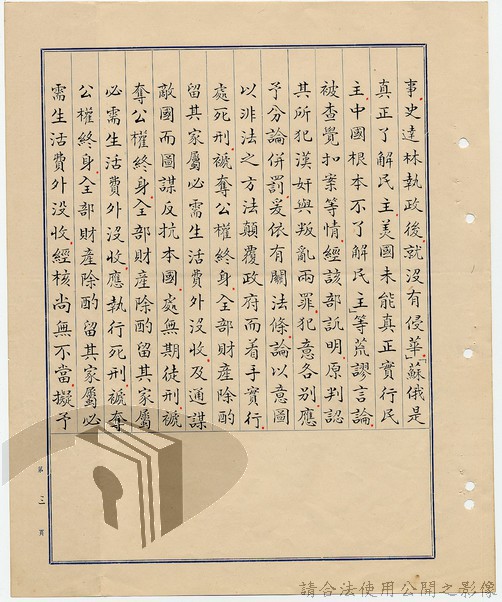 事史達林執政後就沒有侵華「蘇俄是
真正了解民主美國未能真正實行民
主中國根本不了解民主」等荒謬言論
被查覺扣案等情經該部訊明原判認
其所犯漢奸與叛亂兩罪犯意各別應
予分論併罰爰依有關法條論以意圖
以非法之方法顛覆政府而着手實行
處死刑褫奪公權終身全部財產除酌
留其家屬必需生活費外沒收及通謀
敵國而圖謀反抗本國處無期徒刑褫
奪公權終身全部財產除酌留其家屬
必需生活費外沒收應執行死刑褫奪
公權終身全部財產除酌留其家屬必
需生活費外沒收經核尚無不當擬予
第三頁
請合法使用公開之影像